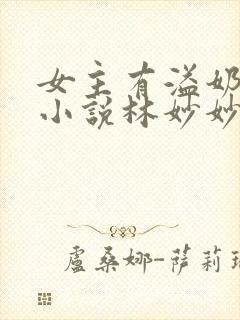 女主有溢奶
小說林妙妙
盧桑娜-薩莉